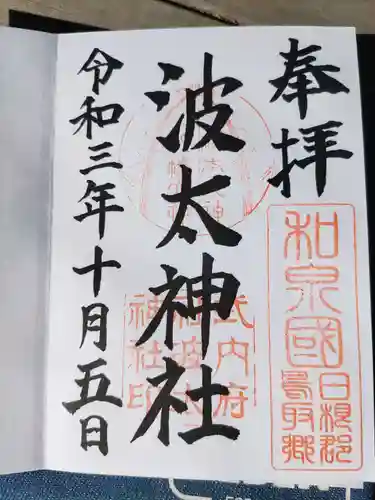 奉拝
和泉國
日根郡
鳥取郷
波太神社
式内府
社波太
神社印
令和三年十月五日